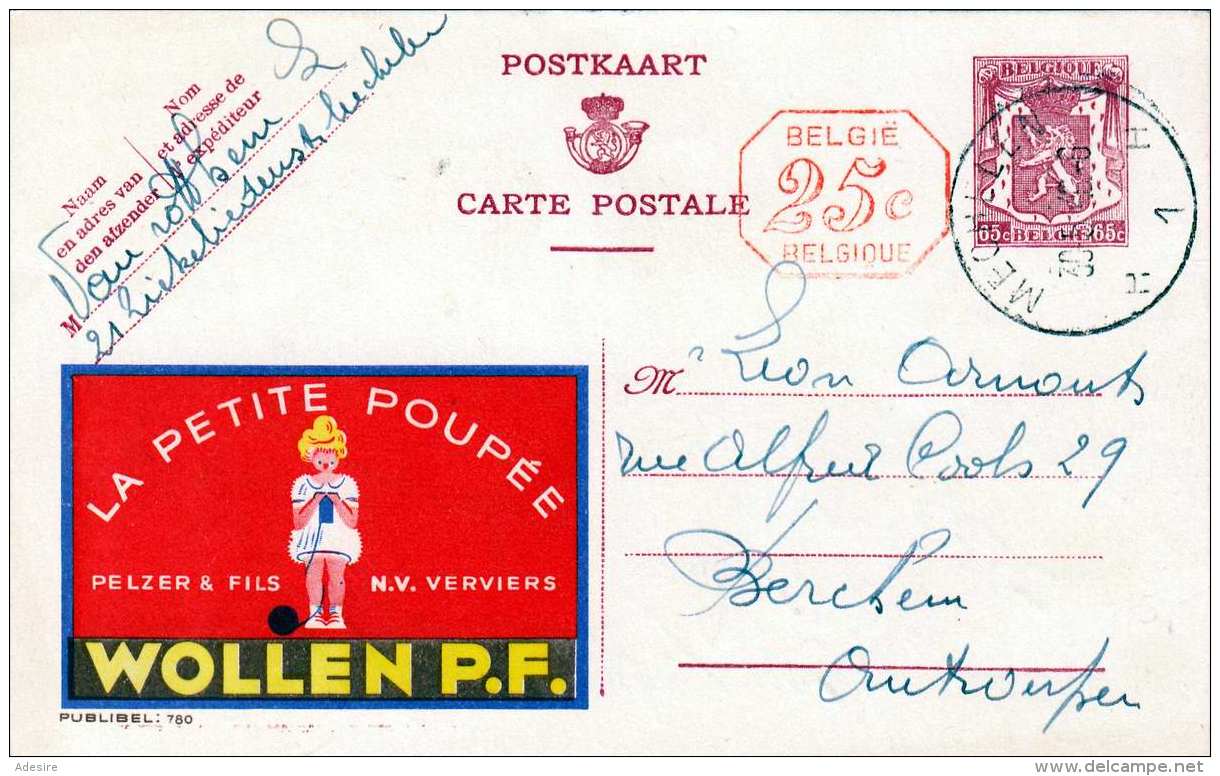 POSTKAART
CARTE POSTALE
BELGIË
25c
BELGIQUE
BELGIQUE
65c BELGIE 65c
MECHELEN
1
Nom
et adresse de
l'expéditeur
Naam
en adres van
den afzender
M
Van
21 Ziekeliedenstr Mechelen
M r Leon Arnouts
rue Alfred Cools 29
Berchem
Antwerpen
LA PETITE POUPÉE
PELZER & FILS N.V. VERVIERS
WOLLEN P.F.
PUBLIBEL: 780
Adesire
delcampe.net